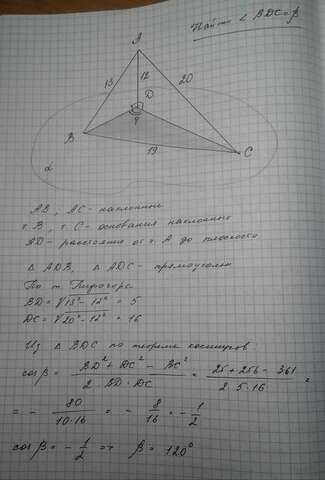 Найти ∠ BDC = β
A
13
12
20
D
β
B
19
C
α
AB, AC - наклонные
т. B, т. C - основания наклонных
AD - расстояние от т. A до плоскости
△ ADB, △ ADC - прямоуголн
По т. Пифагора
BD = √13² - 12² = 5
DC = √20² - 12² = 16
Из △ BDC по теореме косинусов:
cos β = (BD² + DC² - BC²) / (2 · BD · DC) = (25 + 256 - 361) / (2 · 5 · 16) =
= - 80 / (10 · 16) = - 8/16 = - 1/2
cos β = - 1/2 => β = 120°